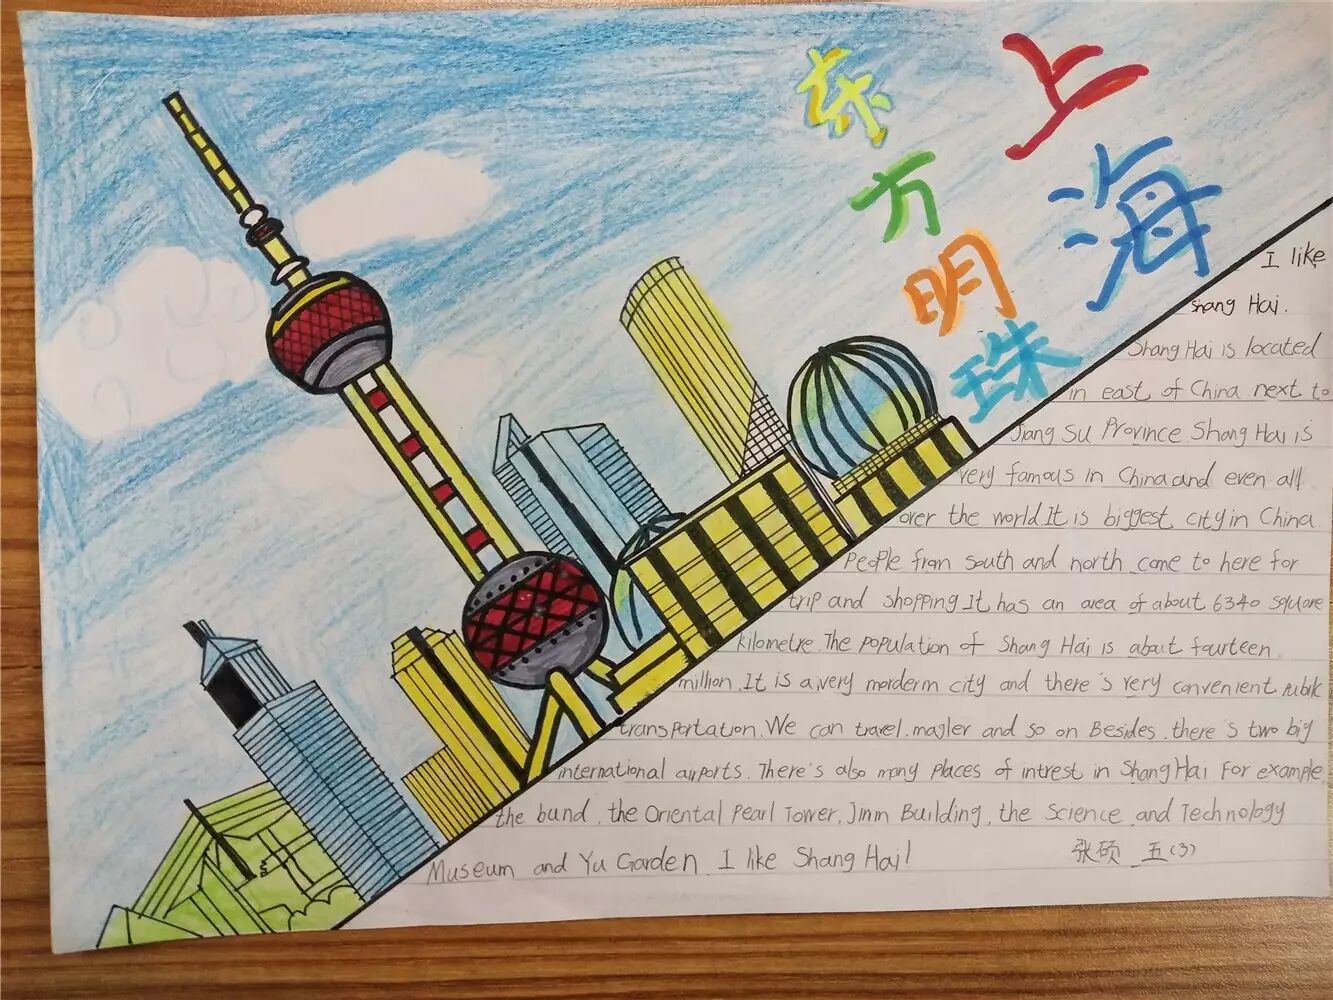 上海
东方明珠
I like
Shang Hai.
Shang Hai is located
in east of China next to
Jiang Su Province Shang Hai is
very famous in China and even all
over the world It is biggest city in China
People from south and north come to here for
trip and shopping It has an area of about 6340 square
kilometre. The population of Shang Hai is about fourteen
million. It is a very morderm city and there's very convenient
transportation. We can travel. magler and so on Besides, there's two big
international airports. There's also many places of intrest in Shang Hai For example,
the bund, the Oriental Pearl Tower, Jinm Building, the Science and Technology
Museum and Yu Garden. I like Shang Hai!
张硕 五(3)